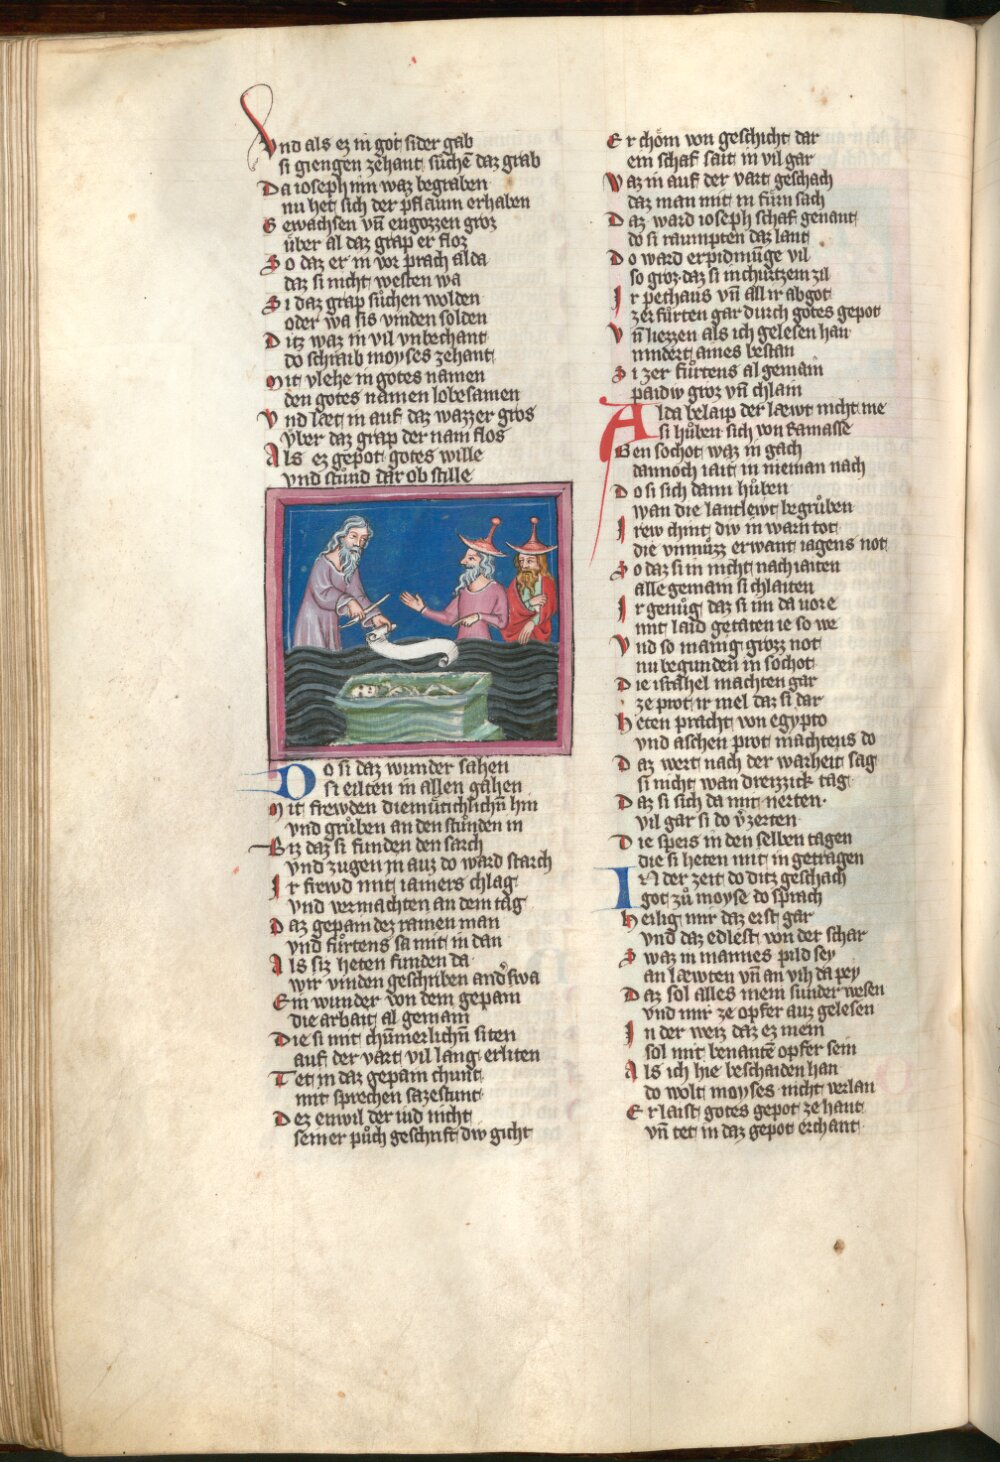 Vnd als ez in got sider gab
si giengen zehant sůchē daz grab
Da ioseph inn waz begraben
nu het sich der pflaum erhaben
Gewachsen vn̄ engozzen groz
über al daz grap er floz
So daz er in vor prach alda
daz si nicht westen wa
Si daz grap sůchen wolden
oder wa sis vinden solden
Ditz waz in vil vnbechant
do schraib moyses zehant
Mit vlehe in gotes namen
den gotes namen lobesamen
Vnd læt in auf daz wazzer gros
vber daz grap der nam flos
Als ez gepot gotes wille
vnd stůnd dar ob stille
Do si daz wunder sahen
si eilten in allen gahen
Mit frewden diemůtichlichn̄ hin
vnd grůben an den stůnden in
Biz daz si funden den sarch
vnd zugen in auz do ward starch
Ir frewd mit iamers chlag
vnd vermachten an dem tag
Daz gepain dez rainen man
vnd fůrtens sa mit in dan
Als siz heten funden da
wir vinden geschriben anderswa
Ein wunder von dem gepain
die arbait al gemain
Die si mit chůmerlichn̄ siten
auf der vart vil lang erliten
Tet in daz gepain chunt
mit sprechen sazestunt
Dez enwil der iud nicht
seiner půch geschrift diw gicht
Er chöm von geschicht dar
ein schaf sait in vil gar
Waz in auf der vart geschach
daz man mit in fůrn sach
Daz ward ioseph schaf genant
do si raumpten daz lant
Do ward erpidmunge vil
so groz daz si in churtzem zil
Ir pethaus vn̄ all ir abgot
zerfůrten gar durch gotes gepot
Vn̄ liezzen als ich gelesen han
nindert aines bestan
Si zerfůrtens al gemain
paidiw groz vn̄ chlain
Alda belaip der læwt nicht me
si hůben sich von Ramasse
Gen sochot waz in gach
dannoch iait in nieman nach
Do si sich dann hůben
wan die lantlewt begrůben
Irew chint diw in warn tot
die vnmůzz erwant iagens not
So daz si in nicht nach iaiten
alle gemain si chlaiten
Ir genůg daz si in da vore
mit laid getaten ie so we
Vnd so manig grozz not
nu begunden in sochot
Die israhel machten gar
ze prot ir mel daz si dar
Heten pracht von egypto
vnd aschen prot machtens do
Daz wert nach der warheit sag
si nicht wan dreizzick tag
Daz si sich da mit nerten
vil gar si do vͦzerten
Die speis in den selben tagen
die si heten mit in getragen
In der zeit do ditz geschach
got zů moyse do sprach
Heilig mir daz erst gar
vnd daz edlest von der schar
Swaz in mannes pild sey
an læwten vn̄ an vih da pey
Daz sol alles mein sunder wesen
vnd mir ze opfer auz gelesen
In der weiz daz ez mein
sol mit benantē opfer sein
Als ich hie beschaiden han
do wolt moyses nicht verlan
Er laist gotes gepot zehant
vn̄ tet in daz gepot erchant